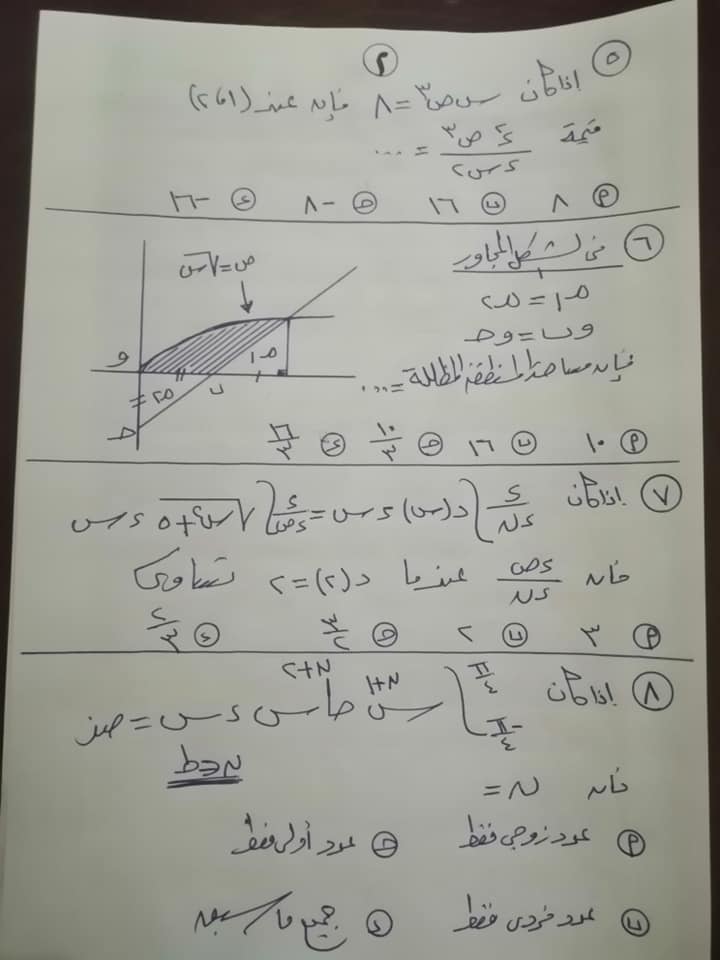 ٢
٥ إذا كان س ص٣ = ٨ فإنه عند (١، ٢)
قيمة د٢ ص٣ / د س٢ = ...
أ ٨ ب ١٦ ج -٨ د -١٦
٦ في الشكل المجاور
م١ = م٢
و ب = و ج
فإن مساحة المنطقة المظللة = ...
ص = √س
و
م١
م٢
ب
=
ج
أ ١٠ ب ١٦ ج ١٠/٣ د ١٦/٣
٧ إذا كان د/دن ∫ د(س) د س = د/دص ∫ √س٢+٥ د س
فإن دص/دن عندما د(٢) = ٢ تساوى
أ ٣ ب ٢ ج ٣/٢ د ٢/٣
٨ إذا كان ∫ -π/٤ π/٤ س ن+١ حا ن+٢ س د س = صفر
ن ∈ ط
فإن ن =
أ عدد زوجي فقط ج عدد أولى فقط
ب عدد فردى فقط د جميع ما سبق